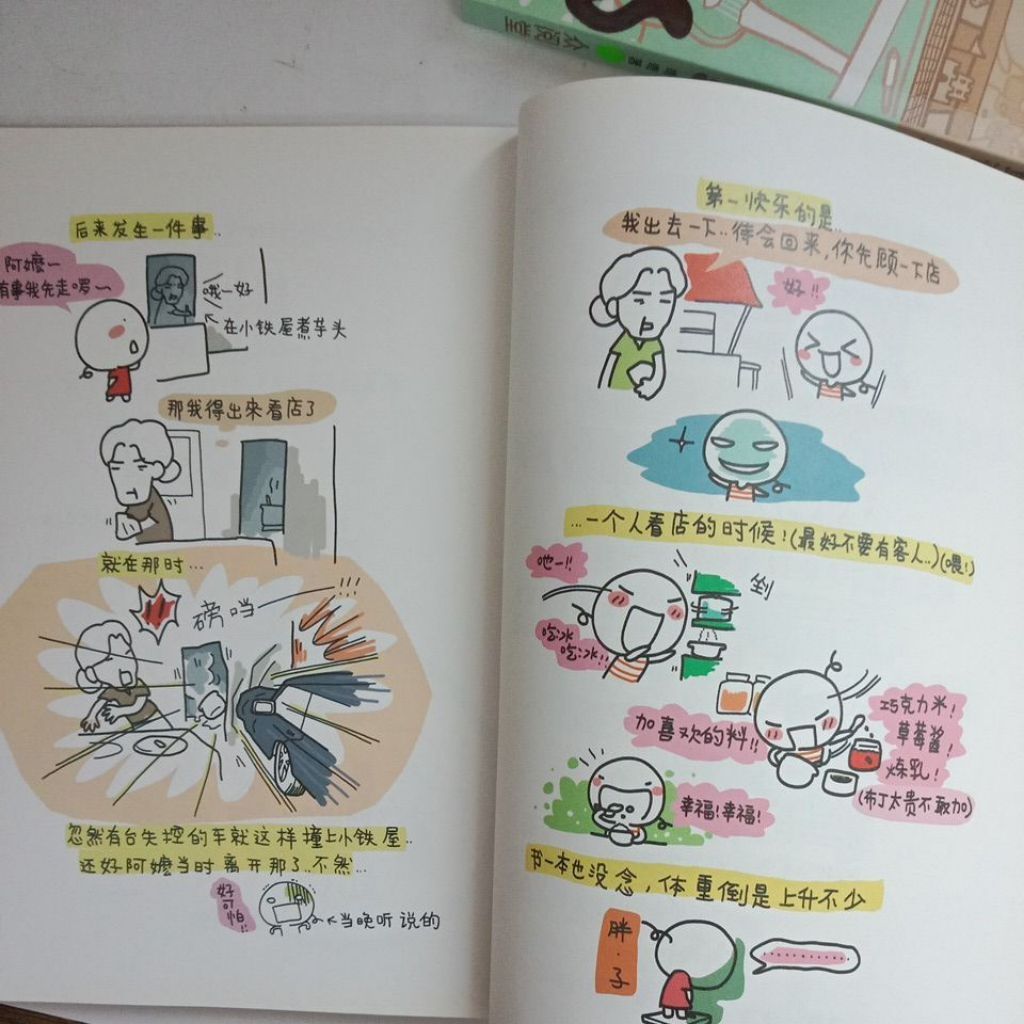 后来发生一件事..
阿嬷一
有事我先走啰~
哦一好
在小铁屋煮芋头
那我得出來看店了
就在那时...
磅当
忽然有台失控的车就这样撞上小铁屋..
还好阿嬷当时离开那了..不然...
好可怕!!
当晚听说的
第一快乐的是..
我出去一下..待会回来,你先顾一下店
好!!
...一个人看店的时候!(最好不要有客人..)(喂!)
吃冰
吃冰!!
加喜欢的料!!
巧克力米!
草莓酱!
炼乳!
(布丁太贵不敢加)
幸福!幸福!
书一本也没念,体重倒是上升不少
胖.子
.........